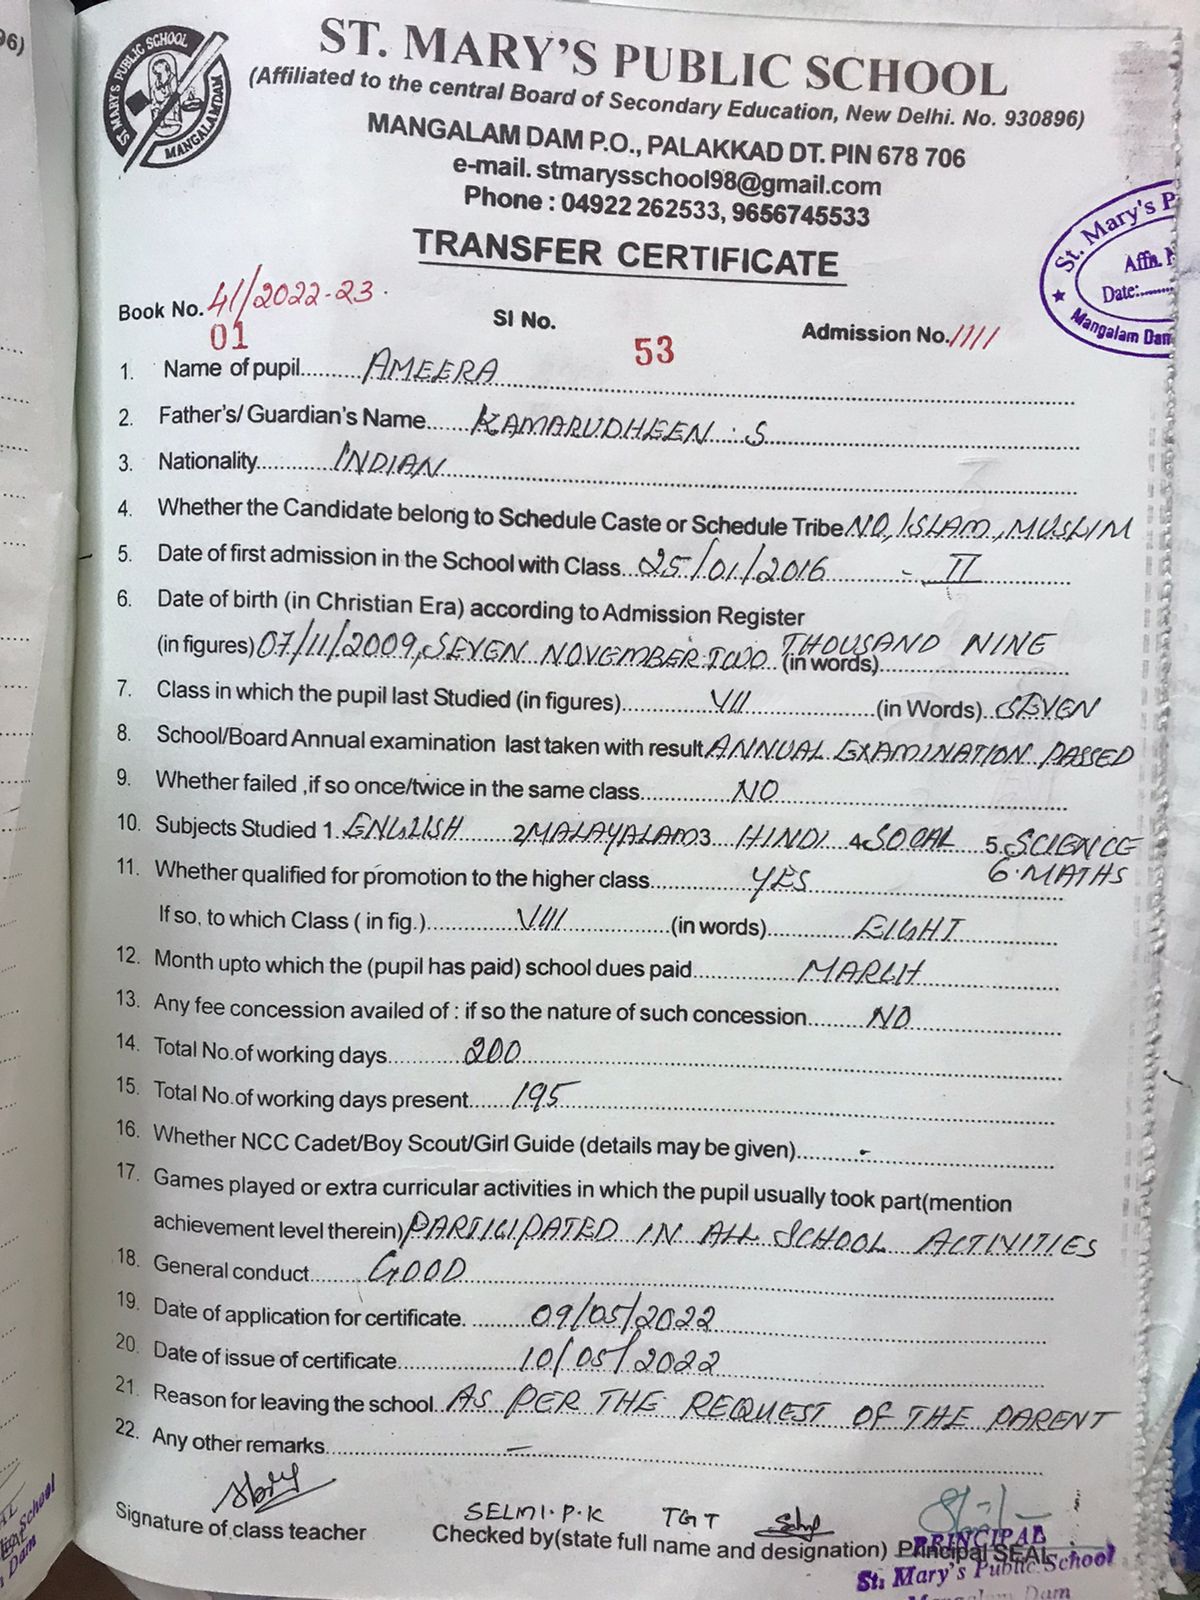 96)
ST MARY'S PUBLIC SCHOOL
MANGALAMDAM
ST. MARY'S PUBLIC SCHOOL
(Affiliated to the central Board of Secondary Education, New Delhi. No. 930896)
MANGALAM DAM P.O., PALAKKAD DT. PIN 678 706
e-mail. stmarysschool98@gmail.com
Phone : 04922 262533, 9656745533
St. Mary's P
Affn. N
Date:.........
Mangalam Dam
TRANSFER CERTIFICATE
Book No. 41/2022-23. SI No. Admission No. 1111
01 53
1. Name of pupil.......... AMEERA
2. Father's/ Guardian's Name...... KAMARUDHEEN . S
3. Nationality............ INDIAN
4. Whether the Candidate belong to Schedule Caste or Schedule Tribe NO, ISLAM, MUSLIM
5. Date of first admission in the School with Class... 25/01/2016 - II
6. Date of birth (in Christian Era) according to Admission Register
(in figures) 07/11/2009, SEVEN NOVEMBER TWO THOUSAND NINE (in words)
7. Class in which the pupil last Studied (in figures).......... VII ..........(in Words).. SEVEN
8. School/Board Annual examination last taken with result ANNUAL EXAMINATION PASSED
9. Whether failed ,if so once/twice in the same class............ NO
10. Subjects Studied 1. ENGLISH 2 MALAYALAM 3 HINDI 4 SOCAL 5. SCIENCE
6. MATHS
11. Whether qualified for promotion to the higher class......... YES
If so, to which Class ( in fig.)......... VIII .........(in words)......... EIGHT
12. Month upto which the (pupil has paid) school dues paid......... MARCH
13. Any fee concession availed of : if so the nature of such concession....... NO
14. Total No.of working days......... 200
15. Total No.of working days present...... 195
16. Whether NCC Cadet/Boy Scout/Girl Guide (details may be given)......... -
17. Games played or extra curricular activities in which the pupil usually took part(mention
achievement level therein) PARTICIPATED IN ALL SCHOOL ACTIVITIES
18. General conduct........ GOOD
19. Date of application for certificate. ......... 09/05/2022
20. Date of issue of certificate............ 10/05/2022
21. Reason for leaving the school. AS PER THE REQUEST OF THE PARENT
22. Any other remarks............ -
SELMI. P. K TGT
Signature of class teacher Checked by(state full name and designation) Principal SEAL
PRINCIPAL
St. Mary's Public School
Mangalam Dam
School
Dam